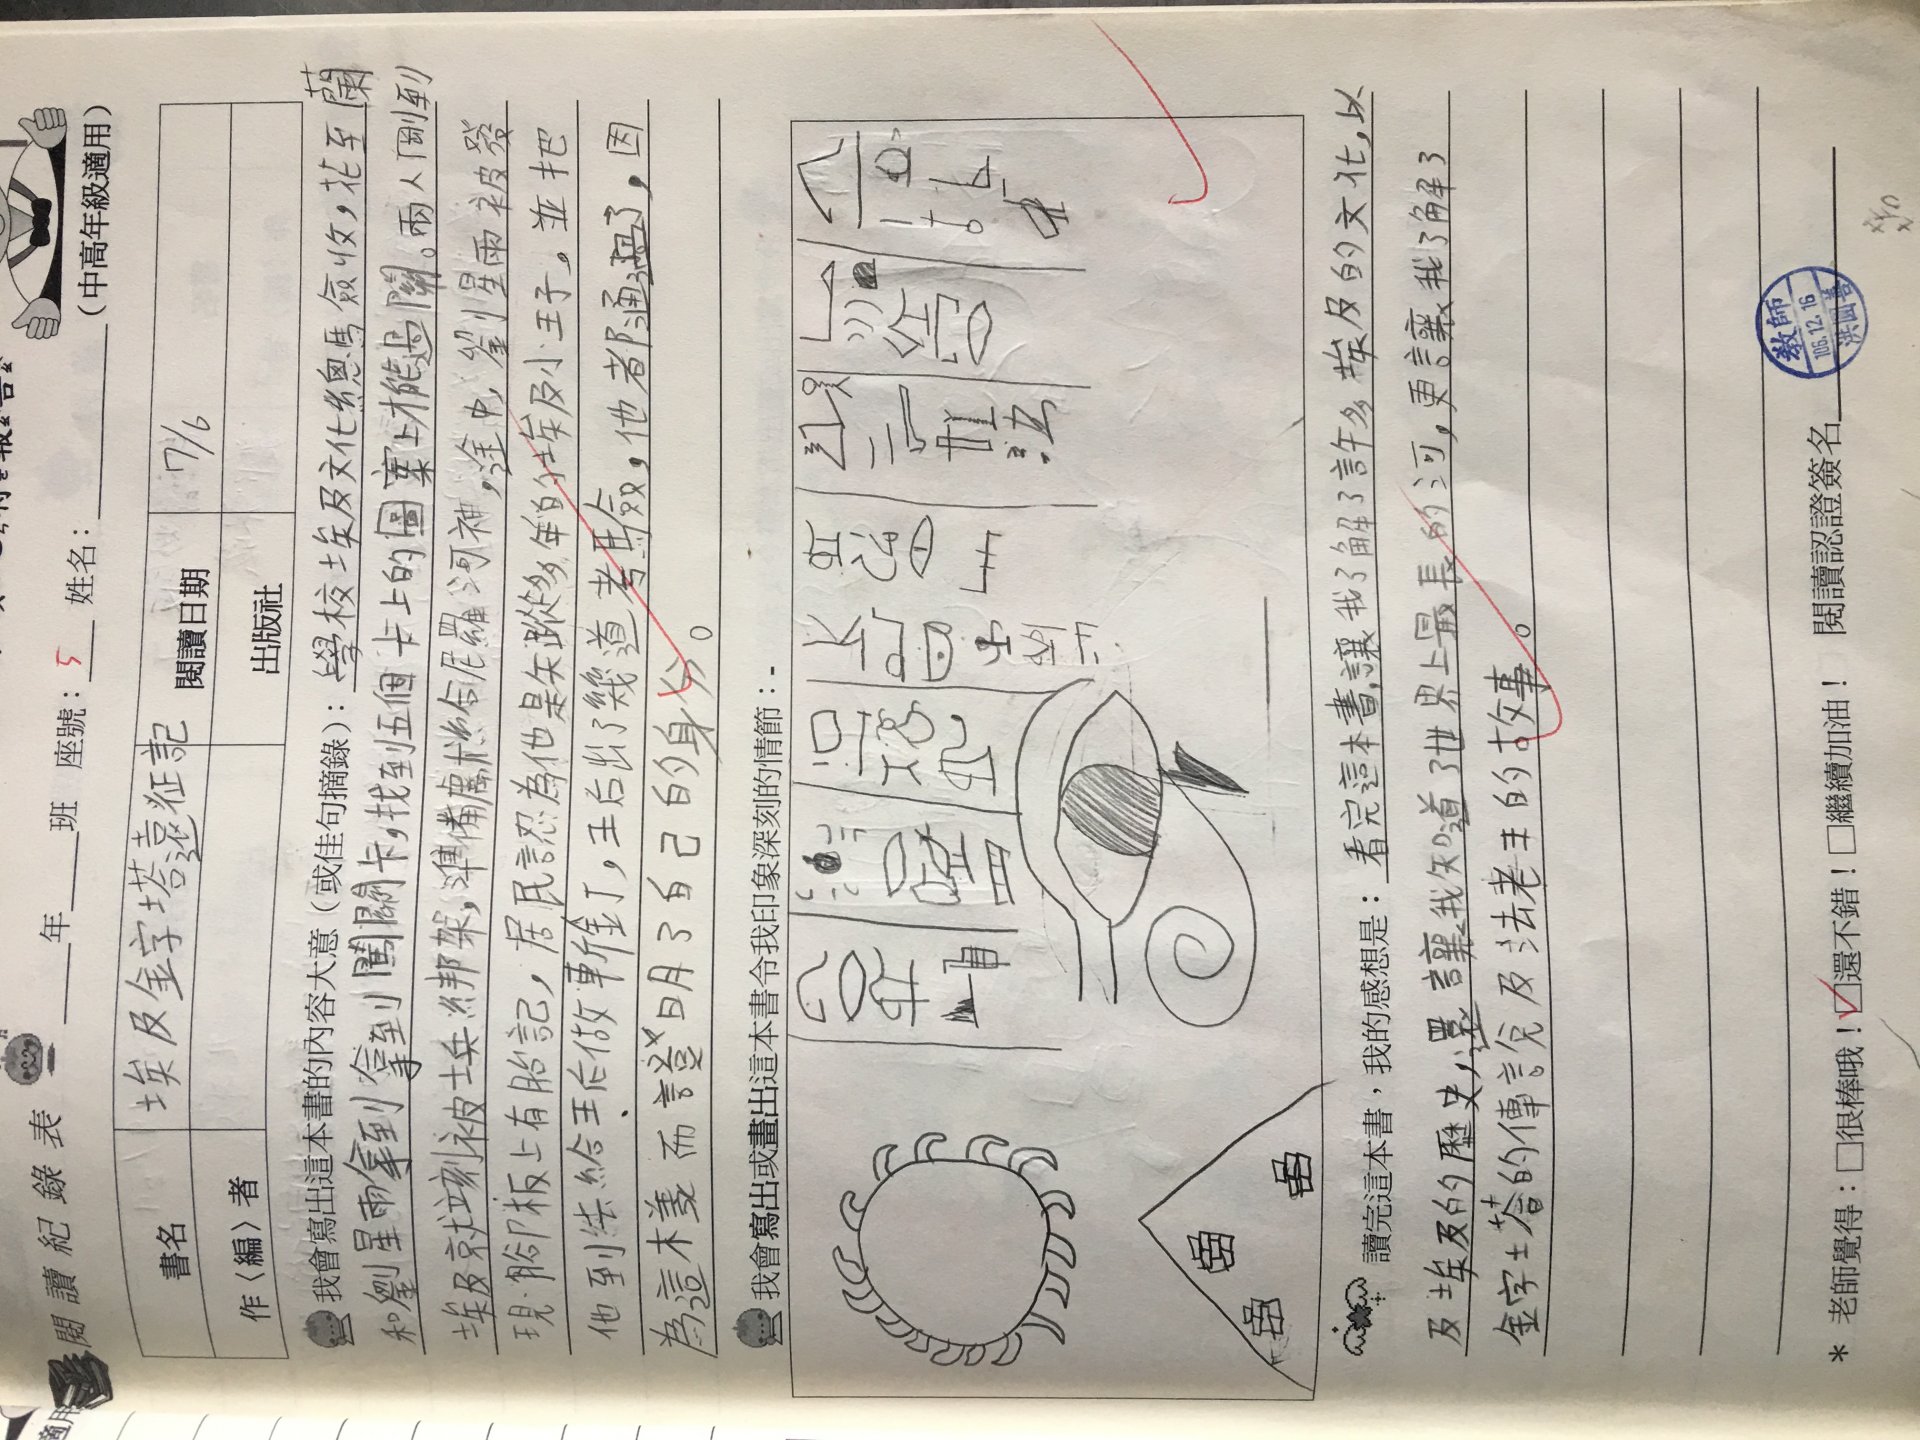 閱讀紀錄表
(中高年級適用)
年 班 座號：5 姓名：
書名 埃及金字塔遠征記 閱讀日期 7/6
作〈編〉者 出版社
我會寫出這本書的內容大意（或佳句摘錄）：學校埃及文化總馬僉收，花至蘭
和劉星雨拿到闖關卡，找到五個卡上的圖案才能過關。兩人剛到
埃及就立刻被士兵綁架，準備獻給尼羅河神，途中，劉星雨被發
現腳板上有胎記，居民認為他是失蹤多年的埃及小王子，並把
他
王后出了幾道考驗，他都通過了，因
為這
而證明了自己的身分。
我會寫出或畫出這本書令我印象深刻的情節：
讀完這本書，我的感想是：看完這本書，讓我了解了許多埃及的文化，以
及埃及的歷史，還讓我知道了世界上最長的河，更讓我了解了
金字塔的傳說及法老王的故事。
＊老師覺得：□很棒哦！☑還不錯！□繼續加油！ 閱讀認證簽名
教師
106.12.16